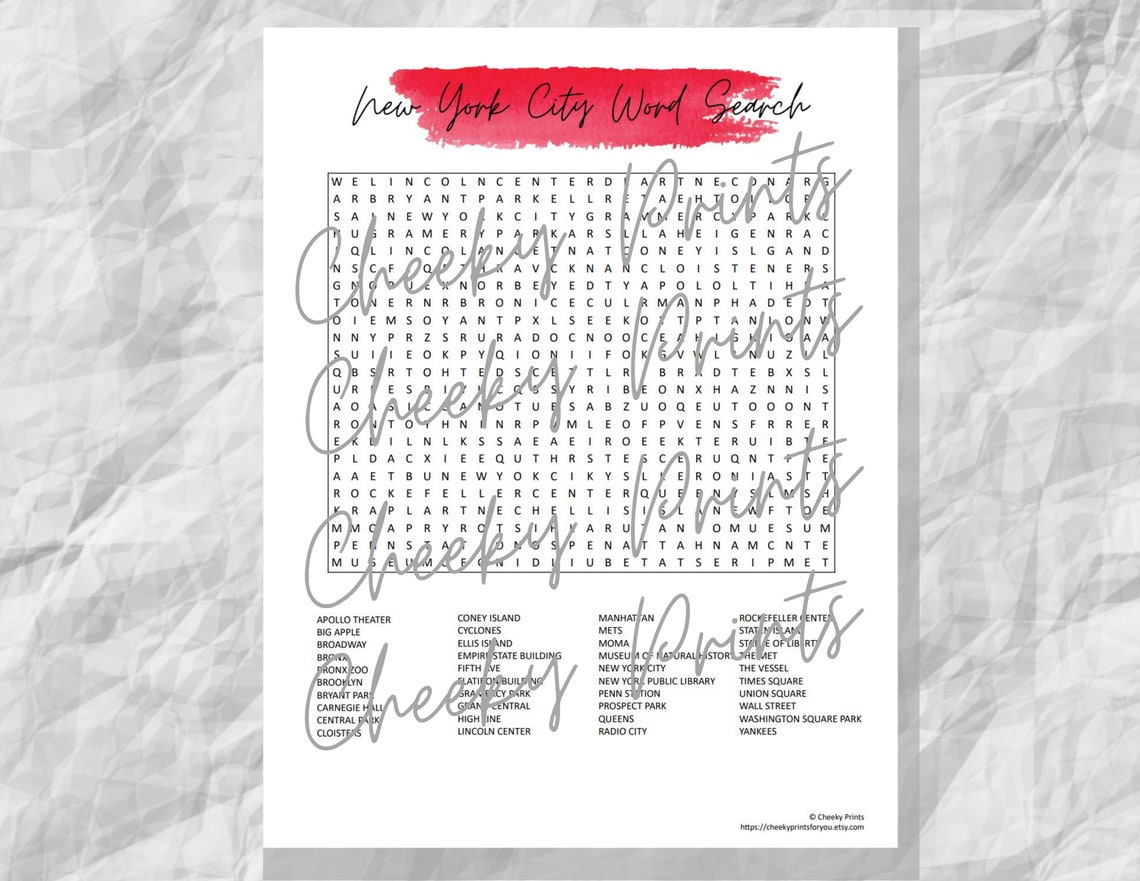 New York City Word Search
W E L I N C O L N C E N T E R D L A R T N E C D N A R G
A R B R Y A N T P A R K E L L R E T A E H T O L L O P A
S A I N E W Y O R K C I T Y G R A M M E R C Y P A R K C
H U G R A M E R Y P A R K A R S L L A H E I G E N R A C
I Q L I N C O L A N A E T N A T C O N E Y I S L G A N D
N S C Q T H K A V C K N A N C L O I S T E N E R S
G N O U E X N O R B E Y E D T Y A P O L O L T I H A
T O N E R N R B R O N I C E C U L R M A N P H A D E D T
O I E M S O Y A N T P X L S E E K O T T P T A N I O N W
N N Y P R Z S R U R A D O C N O O C E A H I G H O A A
S U I I E O K P Y Q I O N I I F O K G V W L N U Z L
Q B S R T O H T E D S C E T T L R B R A D T E B X S L
U R I E S P I Y C Q S S Y R I B E O N X H A Z N N I S
A O A S I C S A N O T U E S A B Z U O Q E U T O O O N T
R O N T O T H N I N R P M L E O F P V E N S F R R E R
E K L I L N L K S S A E A E I R O E E K T E R U I B T E
P L D A C X I E E Q U T H R S T E S C E R U Q N T P A E
A A E T B U N E W Y O K C I K Y S L L E R O N I A S T T
R O C K E F E L L E R C E N T E R Q U E E N Y S M S H
K R A P L A R T N E C H E L L I S I S L A N E W F T O E
M M O A P R Y R O T S I H L A R U T A N F O M U E S U M
P E N N S T A T I O N G S P E N A T T A H N A M C N T E
M U S E U M O F O N I D L I U B E T A T S E R I P M E T
APOLLO THEATER
BIG APPLE
BROADWAY
BRONX
BRONX ZOO
BROOKLYN
BRYANT PARK
CARNEGIE HALL
CENTRAL PARK
CLOISTERS
CONEY ISLAND
CYCLONES
ELLIS ISLAND
EMPIRE STATE BUILDING
FIFTH AVE
FLATIRON BUILDING
GRAMERCY PARK
GRAND CENTRAL
HIGH LINE
LINCOLN CENTER
MANHATTAN
METS
MOMA
MUSEUM OF NATURAL HISTORY
NEW YORK CITY
NEW YORK PUBLIC LIBRARY
PENN STATION
PROSPECT PARK
QUEENS
RADIO CITY
ROCKEFELLER CENTER
STATEN ISLAND
STATUE OF LIBERTY
THE MET
THE VESSEL
TIMES SQUARE
UNION SQUARE
WALL STREET
WASHINGTON SQUARE PARK
YANKEES
Cheeky Prints
Cheeky Prints
Cheeky Prints
Cheeky Prints
© Cheeky Prints
https://cheekyprintsforyou.etsy.com